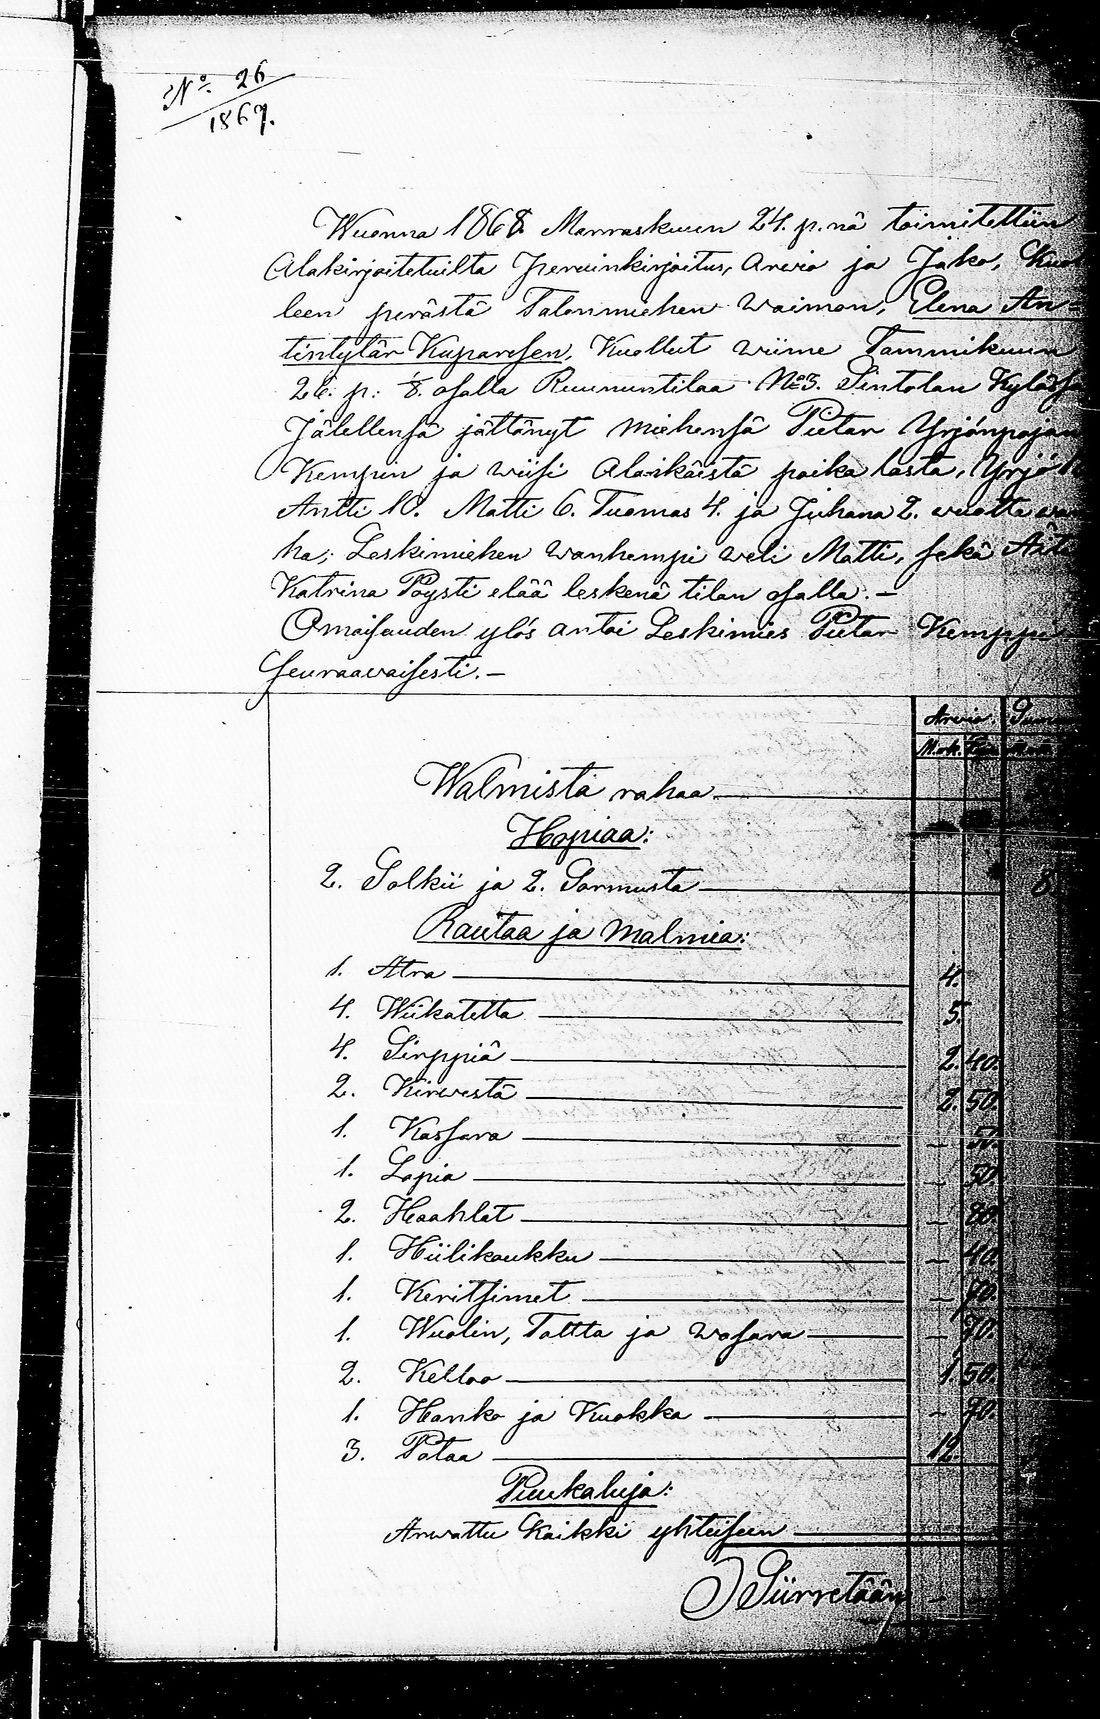 No. 26
1869.
Wuonna 1868 Marraskuun 24. p.nä toimitettiin
Alakirjoitetuilta perunkirjoitus, Arwio ja Jako, Kuo-
leen perästä Talonmiehen waimon, Elena An-
tintytär Kuparisen, Kuollut wiime Tammikuun
26. p: 1/8. osalla Ruununtilaa No 3. Sintolan Kylässä
Jälellensä jättänyt Miehensä Pietar Yrjönpojan
Kempin ja wiisi Alaikäistä poika lasta, Yrjö
Antti 10. Matti 6. Tuomas 4. ja Juhana 2. wuotta wan-
ha; Leskimiehen wanhempi weli Matti, sekä Äiti
Katrina Pöysti elää leskenä tilan osalla. —
Omaisuuden ylös antoi Leskimies Pietar Kemppi
seuraavaisesti. —
Arwio. Summa
M.ok. Pen.
Walmista rahaa
Hopiaa:
2. Solkii ja 2. Sormusta 8
Rautaa ja Malmia:
1. Atra 4.
4. Wiikatetta 5.
4. Sirppiä 2. 40.
2. Kirwestä 2. 50.
1. Kassara – 50.
1. Lapia – 50.
2. Haahlat – 80.
1. Hiilikoukku – 40.
1. Keritsimet – 70.
1. Wuolin, Taltta ja Wasara – 70.
2. Kelloa 1. 50.
1. Hanko ja Kuokka – 70.
3. Pataa 12.
Puukaluja:
Arwattu Kaikki yhteiseen
Siirretään –